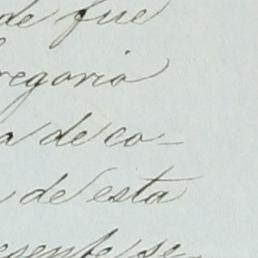 de fue
regorio
a de co-
de esta
esente se-